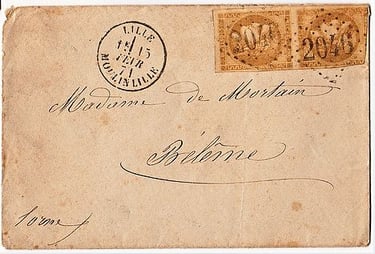 LILLE
15
FÉVR
71
MOULINLILLE
2046
2046
Madame de Mortain
Bélême
Orne